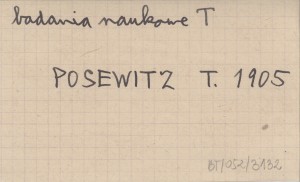 badania naukowe T
POSEWITZ T. 1905
BT/052/3132